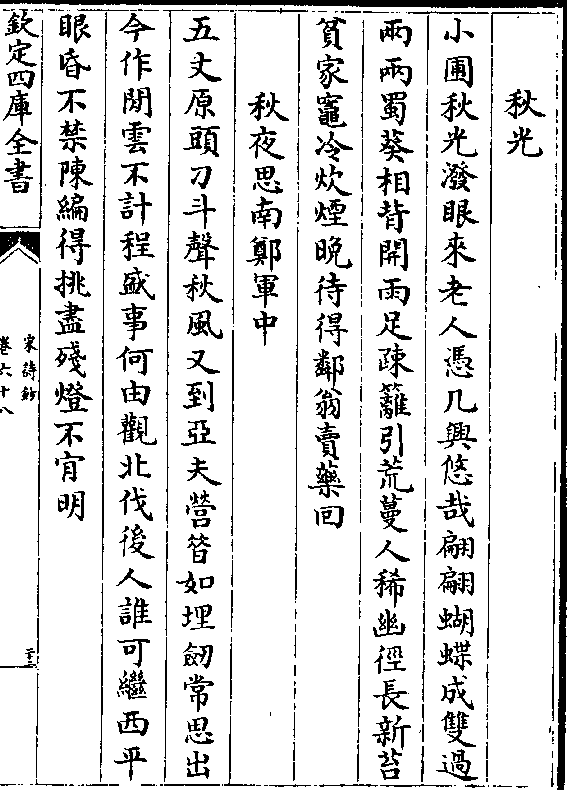 秋光
小圃秋光潑眼來老人憑几興悠哉翩翩蝴蝶成雙過
兩兩蜀葵相背開雨足疎籬引荒蔓人稀幽徑長新苔
貧家竈冷炊煙晚待得鄰翁賣藥回
秋夜思南鄭軍中
五丈原頭刁斗聲秋風又到亞夫營昔如埋劒常思出
今作閒雲不計程盛事何由觀北伐後人誰可繼西平
眼昏不禁陳編得挑盡殘燈不肯明
欽定四庫全書
宋詩鈔
卷六十八